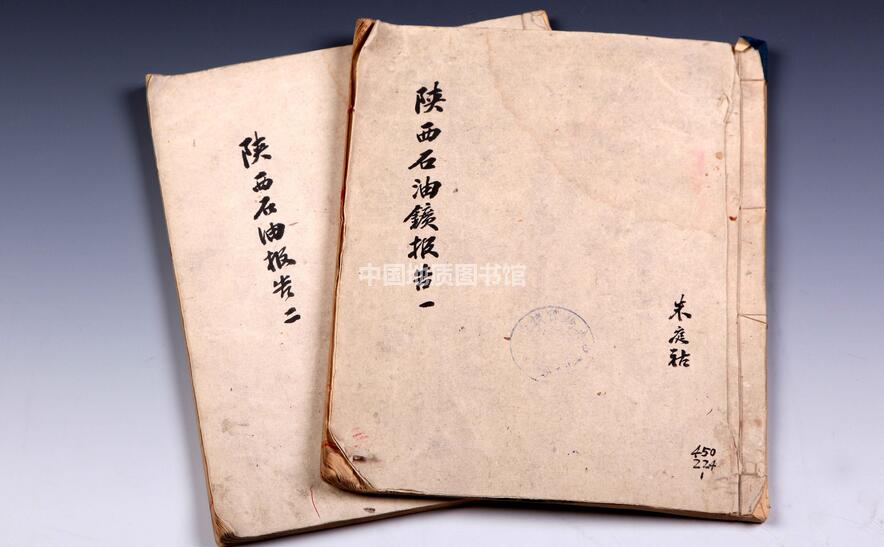 陕西石油鑛报告一
朱庭祜
450
224
1
陕西石油报告二
中国地质图书馆